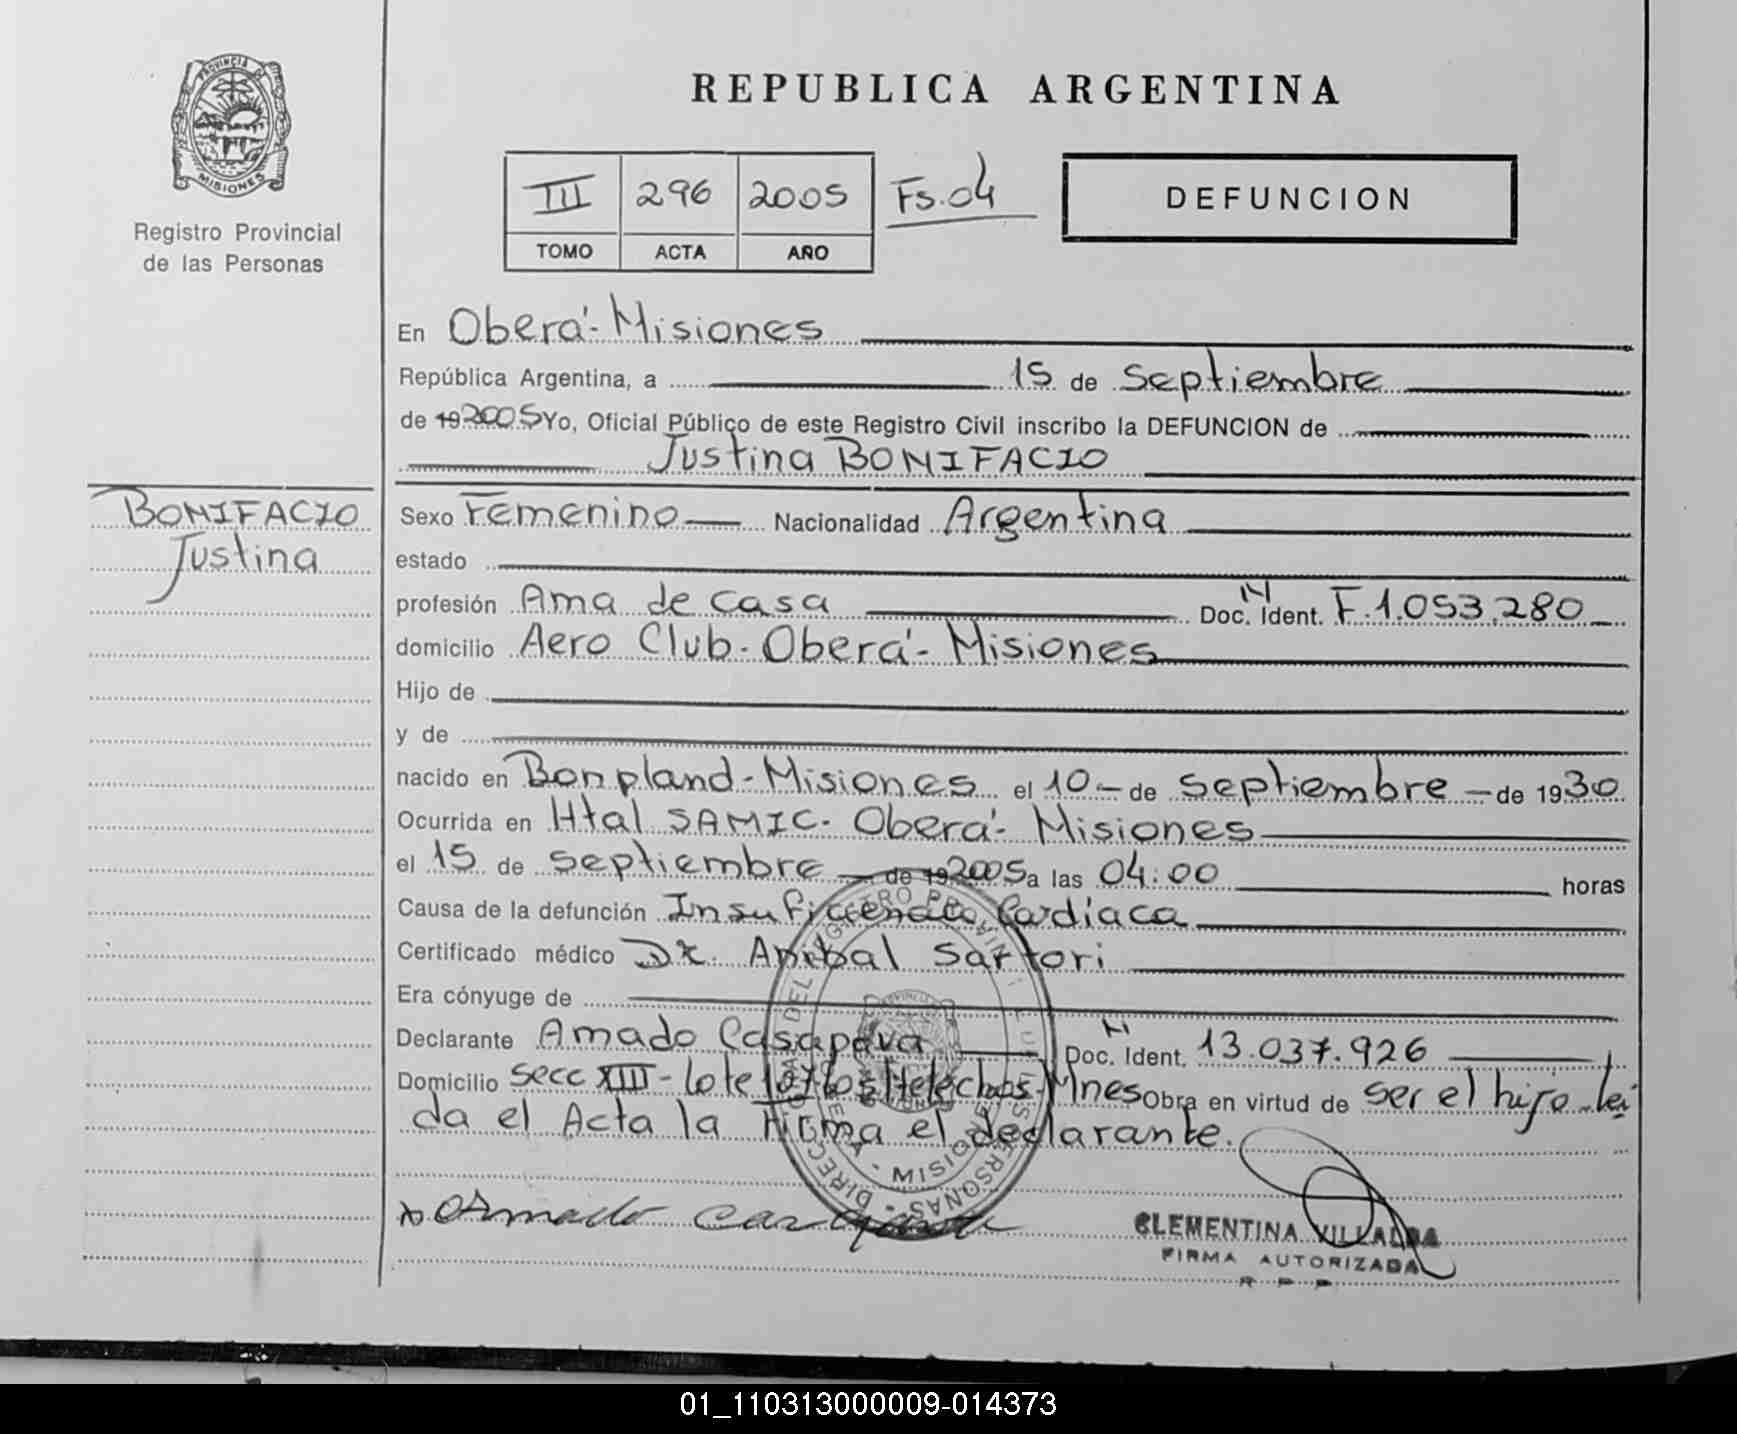 PROVINCIA DE
MISIONES
Registro Provincial
de las Personas
REPUBLICA ARGENTINA
III 296 2005 Fs.04
TOMO ACTA AÑO
DEFUNCION
En Oberá-Misiones
República Argentina, a 15 de Septiembre
de 19 2005 Yo, Oficial Público de este Registro Civil inscribo la DEFUNCION de
Justina BONIFACIO
BONIFACIO
Justina
Sexo Femenino Nacionalidad Argentina
estado
profesión Ama de casa Doc. N Ident. F.1.053.280
domicilio Aero Club-Oberá-Misiones
Hijo de
y de
nacido en Bonpland-Misiones el 10 de Septiembre de 1930
Ocurrida en Htal SAMIC-Oberá-Misiones
el 15 de Septiembre de 19 2005 a las 04:00 horas
Causa de la defunción Insuficiencia Cardíaca
Certificado médico Dr. Anibal Sartori
Era cónyuge de
Declarante Amado Casapava Doc. N Ident. 13.037.926
Domicilio Secc XIII-Lote 107 Los Helechos-Mnes Obra en virtud de ser el hijo-lei
da el Acta la firma el declarante.
Amado
CLEMENTINA VILLALBA
FIRMA AUTORIZADA
R P P
MISIONES
01_110313000009-014373